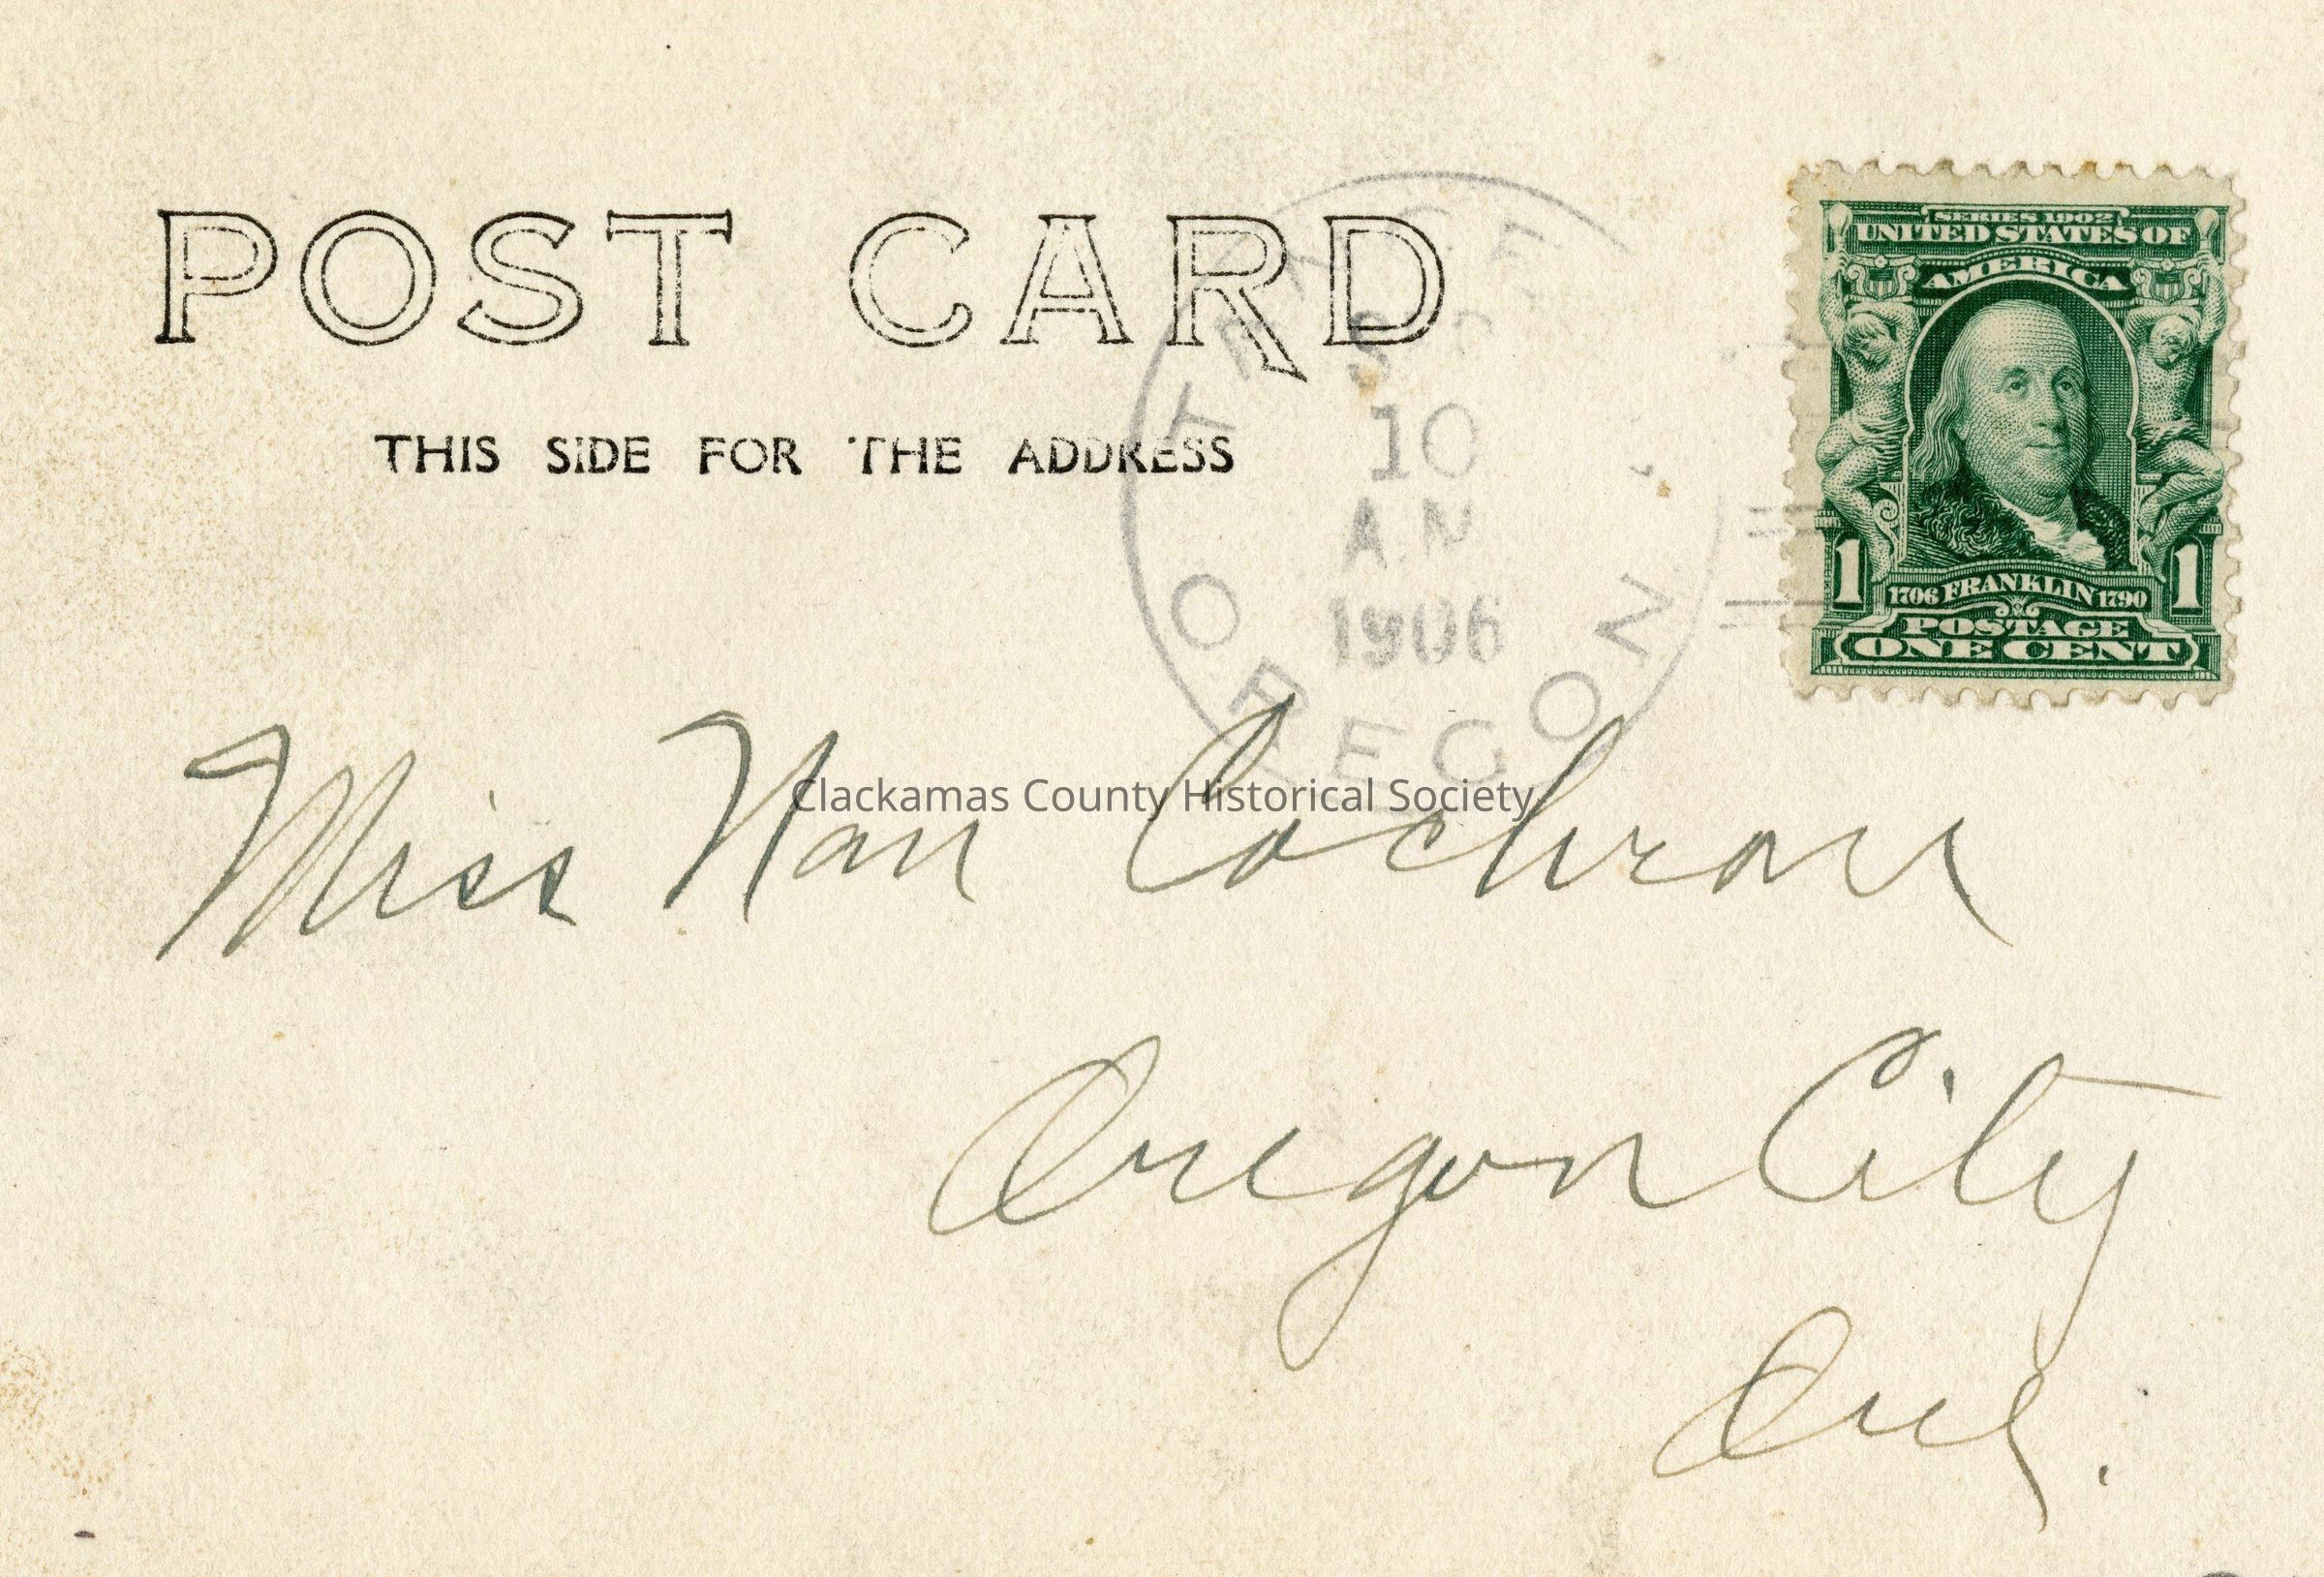 POST CARD
THIS SIDE FOR THE ADDRESS
10
A.M
1906
OREGON
SERIES 1902
UNITED STATES OF
AMERICA
1 1
1706 FRANKLIN 1790
POSTAGE
ONE CENT
Miss Nan Cochran
Clackamas County Historical Society
Oregon City
Ore.